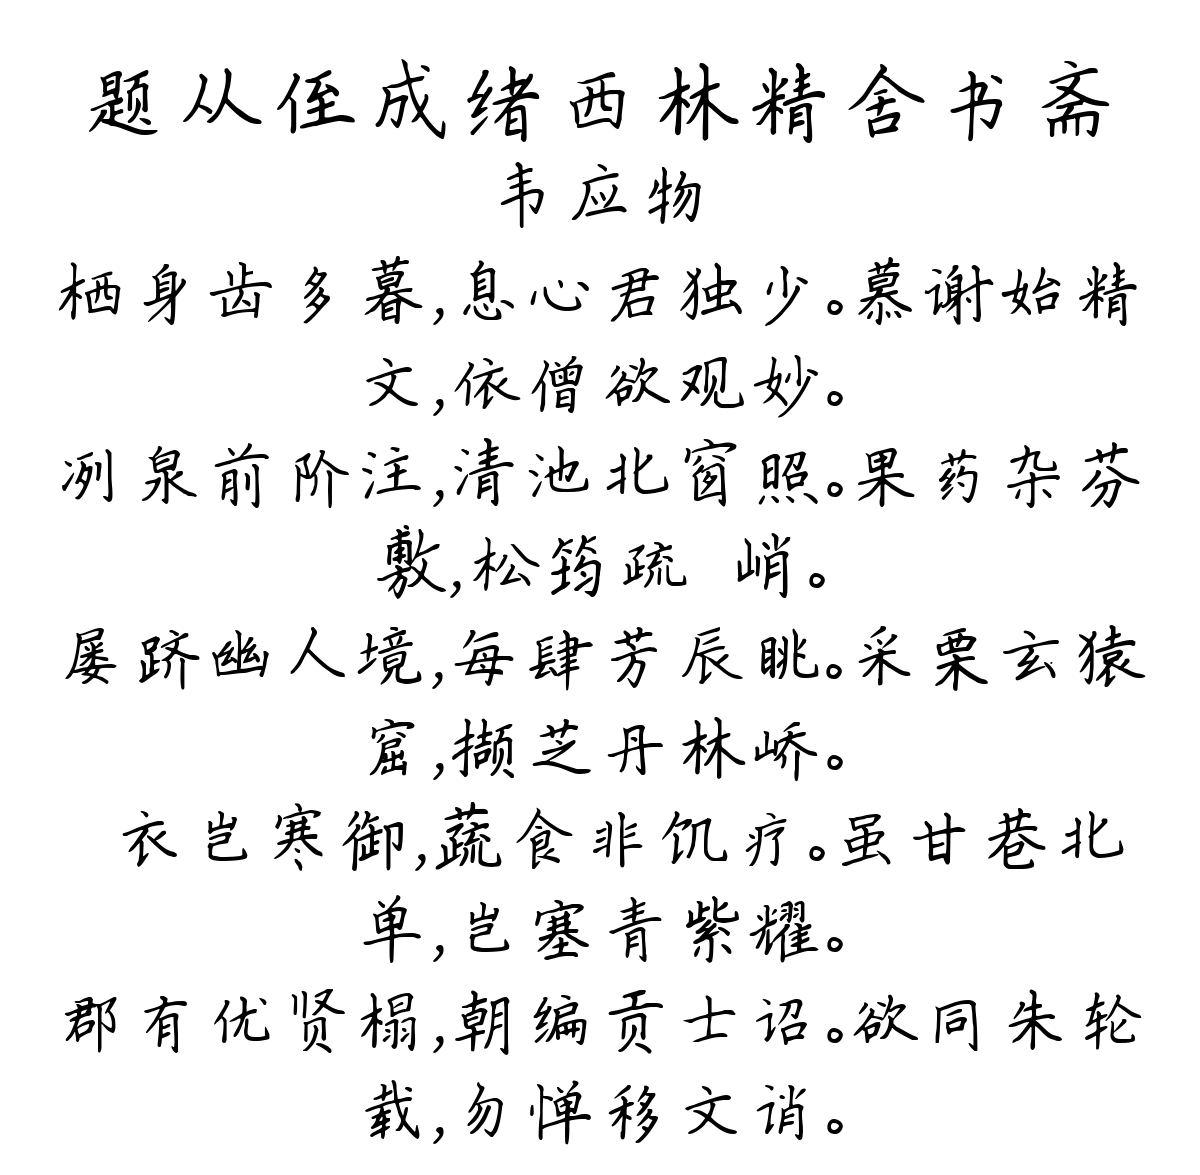 题从侄成绪西林精舍书斋
韦应物
栖身齿多暮,息心君独少。慕谢始精
文,依僧欲观妙。
冽泉前阶注,清池北窗照。果药杂芬
敷,松筠疏 峭。
屡跻幽人境,每肆芳辰眺。采栗玄猿
窟,撷芝丹林峤。
衣岂寒御,蔬食非饥疗。虽甘巷北
单,岂塞青紫耀。
郡有优贤榻,朝编贡士诏。欲同朱轮
载,勿惮移文诮。